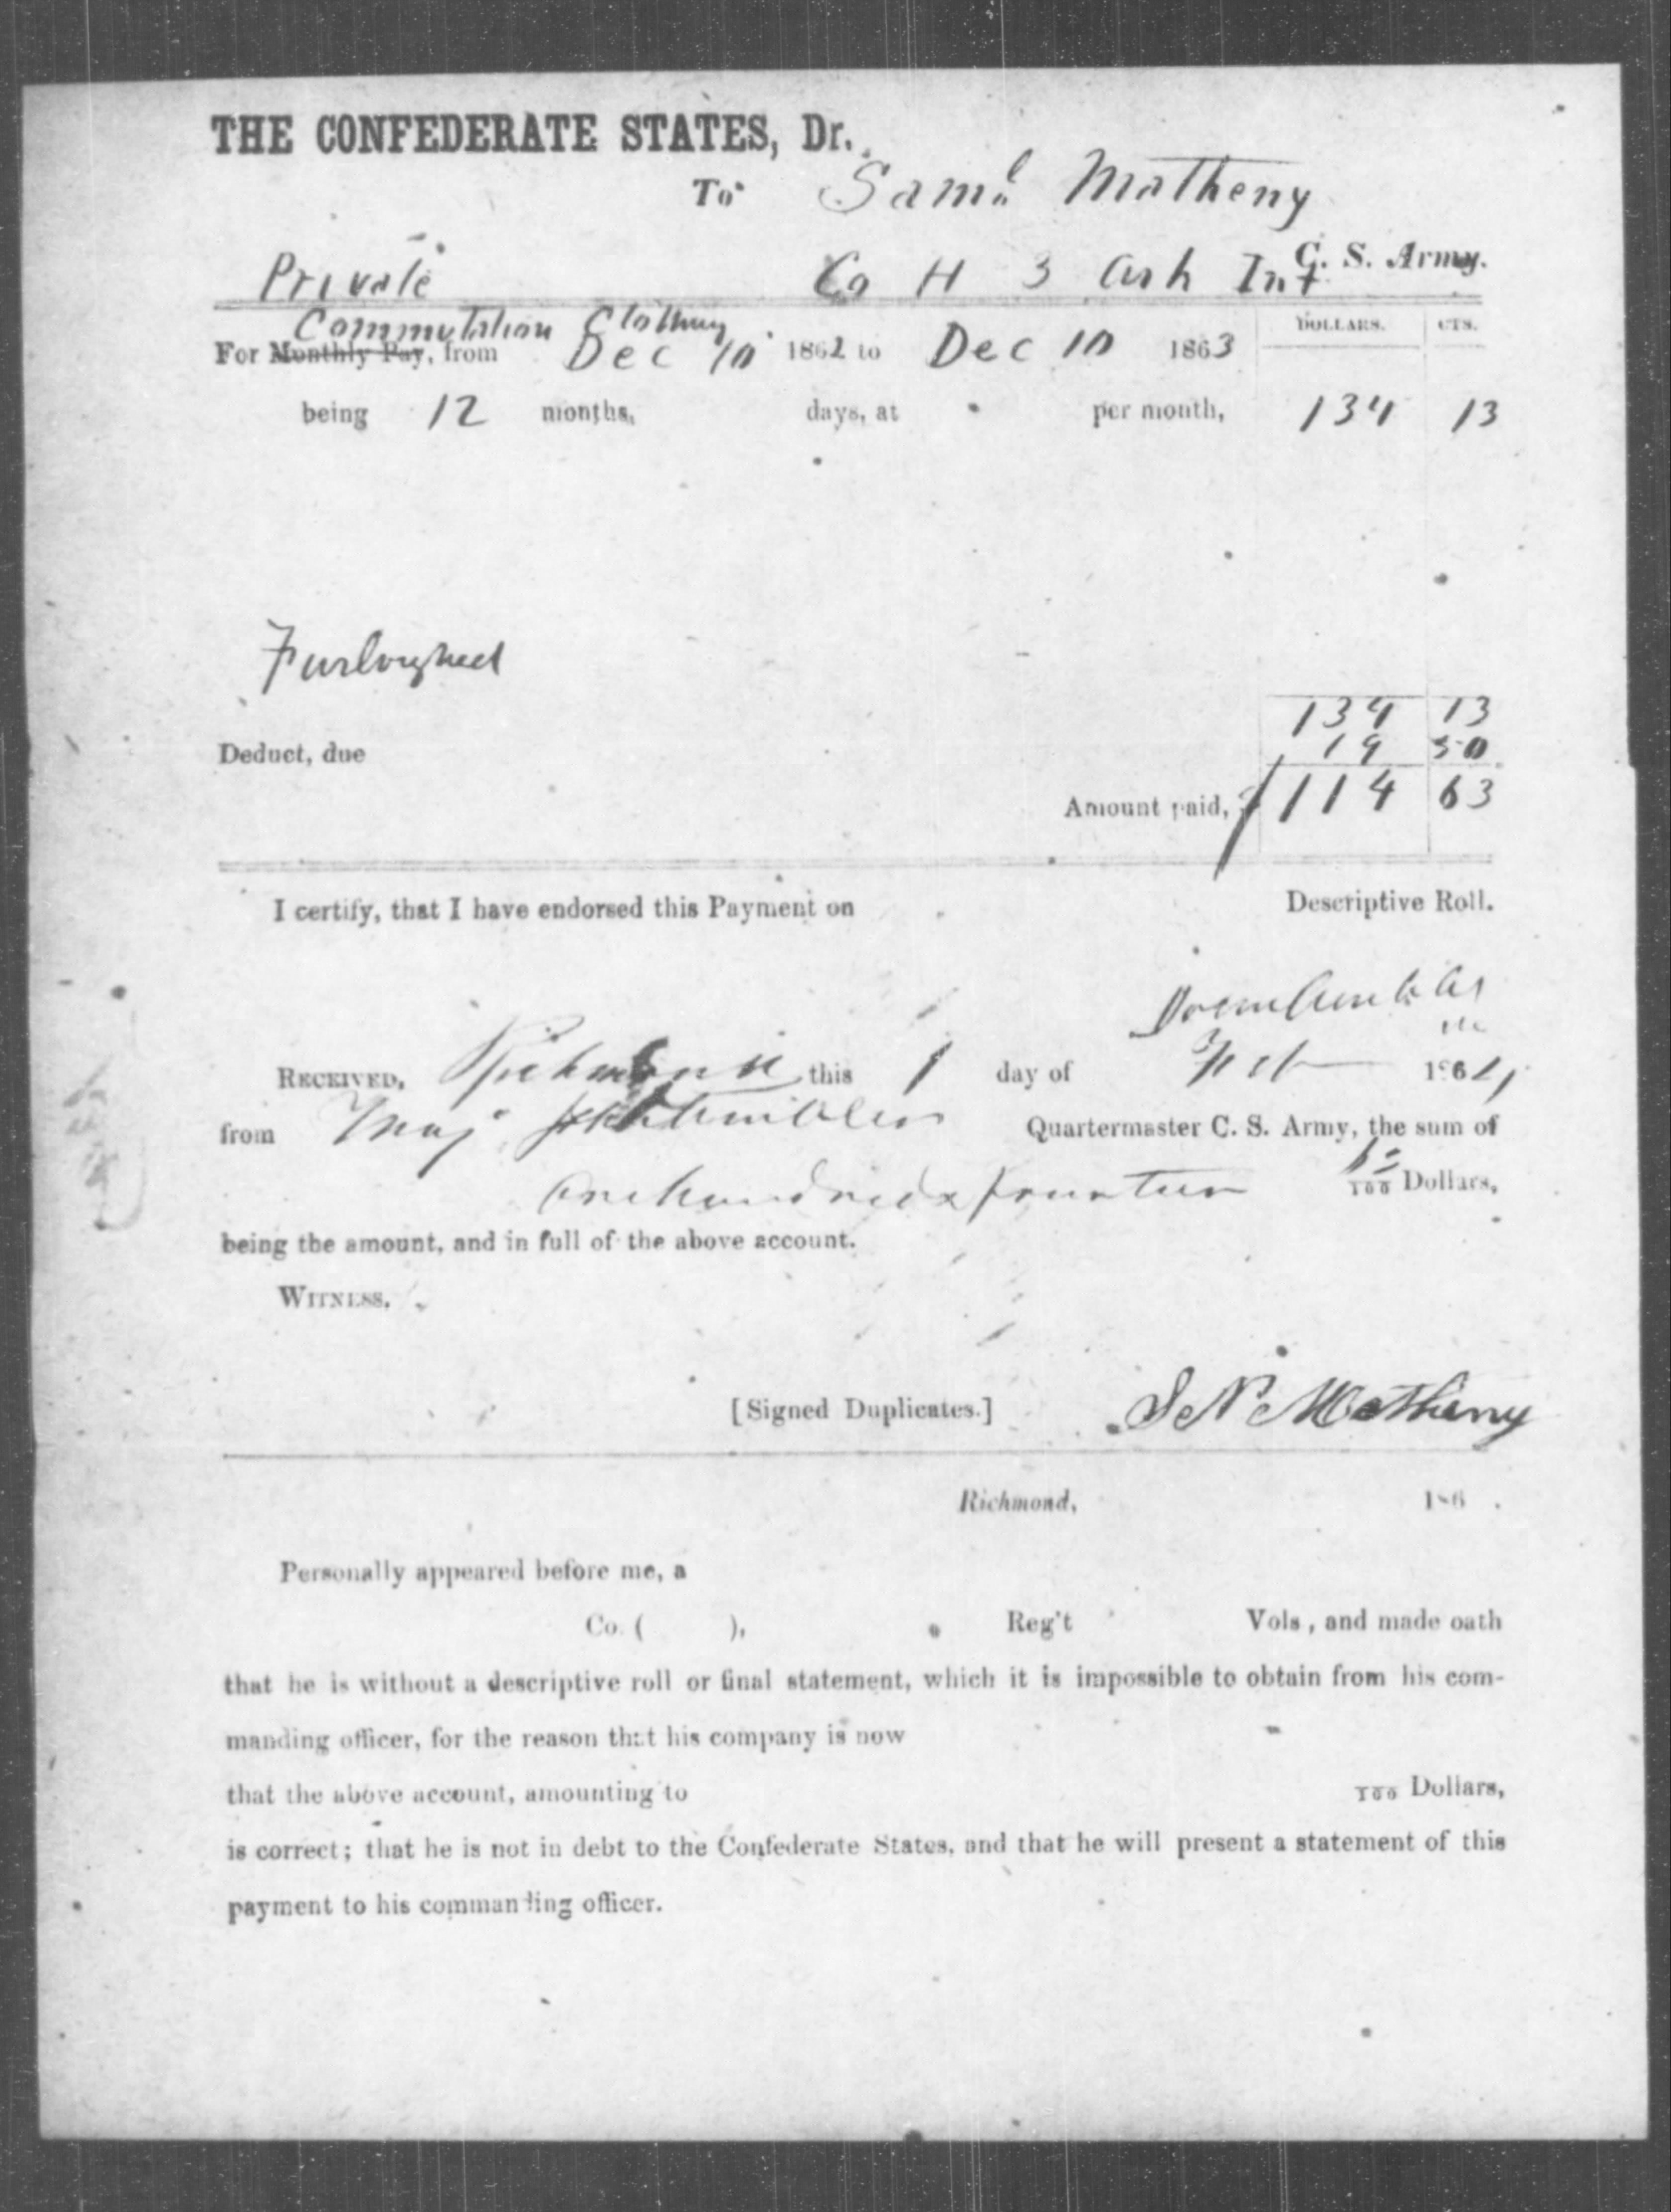 THE CONFEDERATE STATES, Dr.
To Saml Matheny
Private Co H 3 Ark Inf C. S. Army.
Commutation Clothing
DOLLARS. CTS.
For Monthly Pay, from Dec 10 1862 to Dec 10 1863
being 12 months, days, at per month, 134 13
Furloughed
134 13
Deduct, due 19 50
Amount paid, $114 63
I certify, that I have endorsed this Payment on Descriptive Roll.
RECEIVED, Richmond this 1 day of Feb 1864,
from Maj Quartermaster C. S. Army, the sum of
One hundred & fourteen 63/100 Dollars,
being the amount, and in full of the above account.
WITNESS.
[Signed Duplicates.] S N Matheny
Richmond, 186 .
Personally appeared before me, a
Co. ( ), Reg't Vols, and made oath
that he is without a descriptive roll or final statement, which it is impossible to obtain from his com-
manding officer, for the reason that his company is now
that the above account, amounting to 100 Dollars,
is correct; that he is not in debt to the Confederate States, and that he will present a statement of this
payment to his commanding officer.